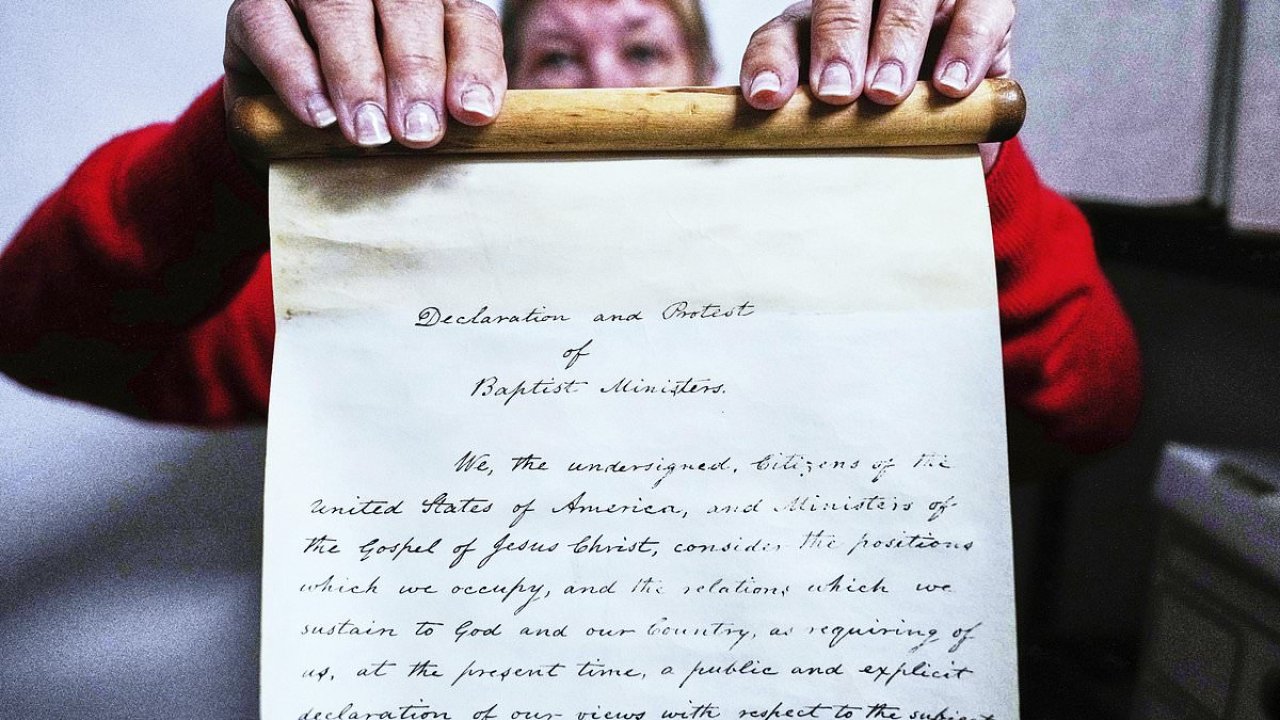 Declaration and Protest
of
Baptist Ministers.
We, the undersigned, Citizens of the
United States of America, and Ministers of
the Gospel of Jesus Christ, consider the positions
which we occupy, and the relations which we
sustain to God and our Country, as requiring of
us, at the present time, a public and explicit
declaration of our views with respect to the subject